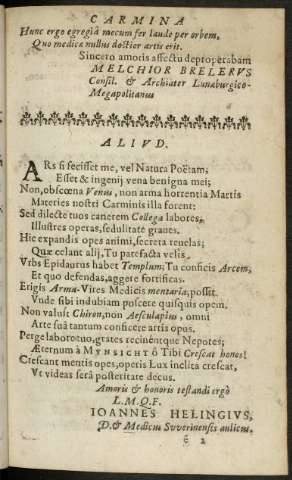 CARMINA
Hunc ergo egregiâ mecum fer laude per orbem,
Quo medicæ nullus doctior artis erit.
Sincero amoris affectu deproperabam
MELCHIOR BRELERVS
Consil. & Archiater Lunaburgico-
Megapolitanus
ALIVD.
ARs si fecisset me, vel Natura Poëtam;
Esset & ingenij vena benigna mei;
Non, obscœna Venus, non arma horrentia Martis
Materies nostri Carminis illa forent:
Sed dilecte tuos canerem Collega labores,
Illustres operas, sedulitate graues.
Hic expandis opes animi, secreta reuelas;
Quæ celant alij, Tu patefacta velis.
Vrbs Epidaurus habet Templum; Tu conficis Arcem,
Et quo defendas, aggere fortificas.
Erigis Arma-Vires Medicis mentaria, possit.
Vnde sibi indubiam poscere quisquis opem.
Non valuit Chiron, non Aesculapius, omni
Arte suâ tantum conficere artis opus.
Perge labori tuo, grates recinentque Nepotes;
Æternum à MYNSICHT ô Tibi Crescat honos!
Crescant mentis opes, operis Lux inclita crescat,
Vt videas serâ posteritate decus.
Amoris & honoris testandi ergò
L.M.Q.F.
IOANNES HELINGIVS,
D. & Medicus Suverinensis aulicus.
2